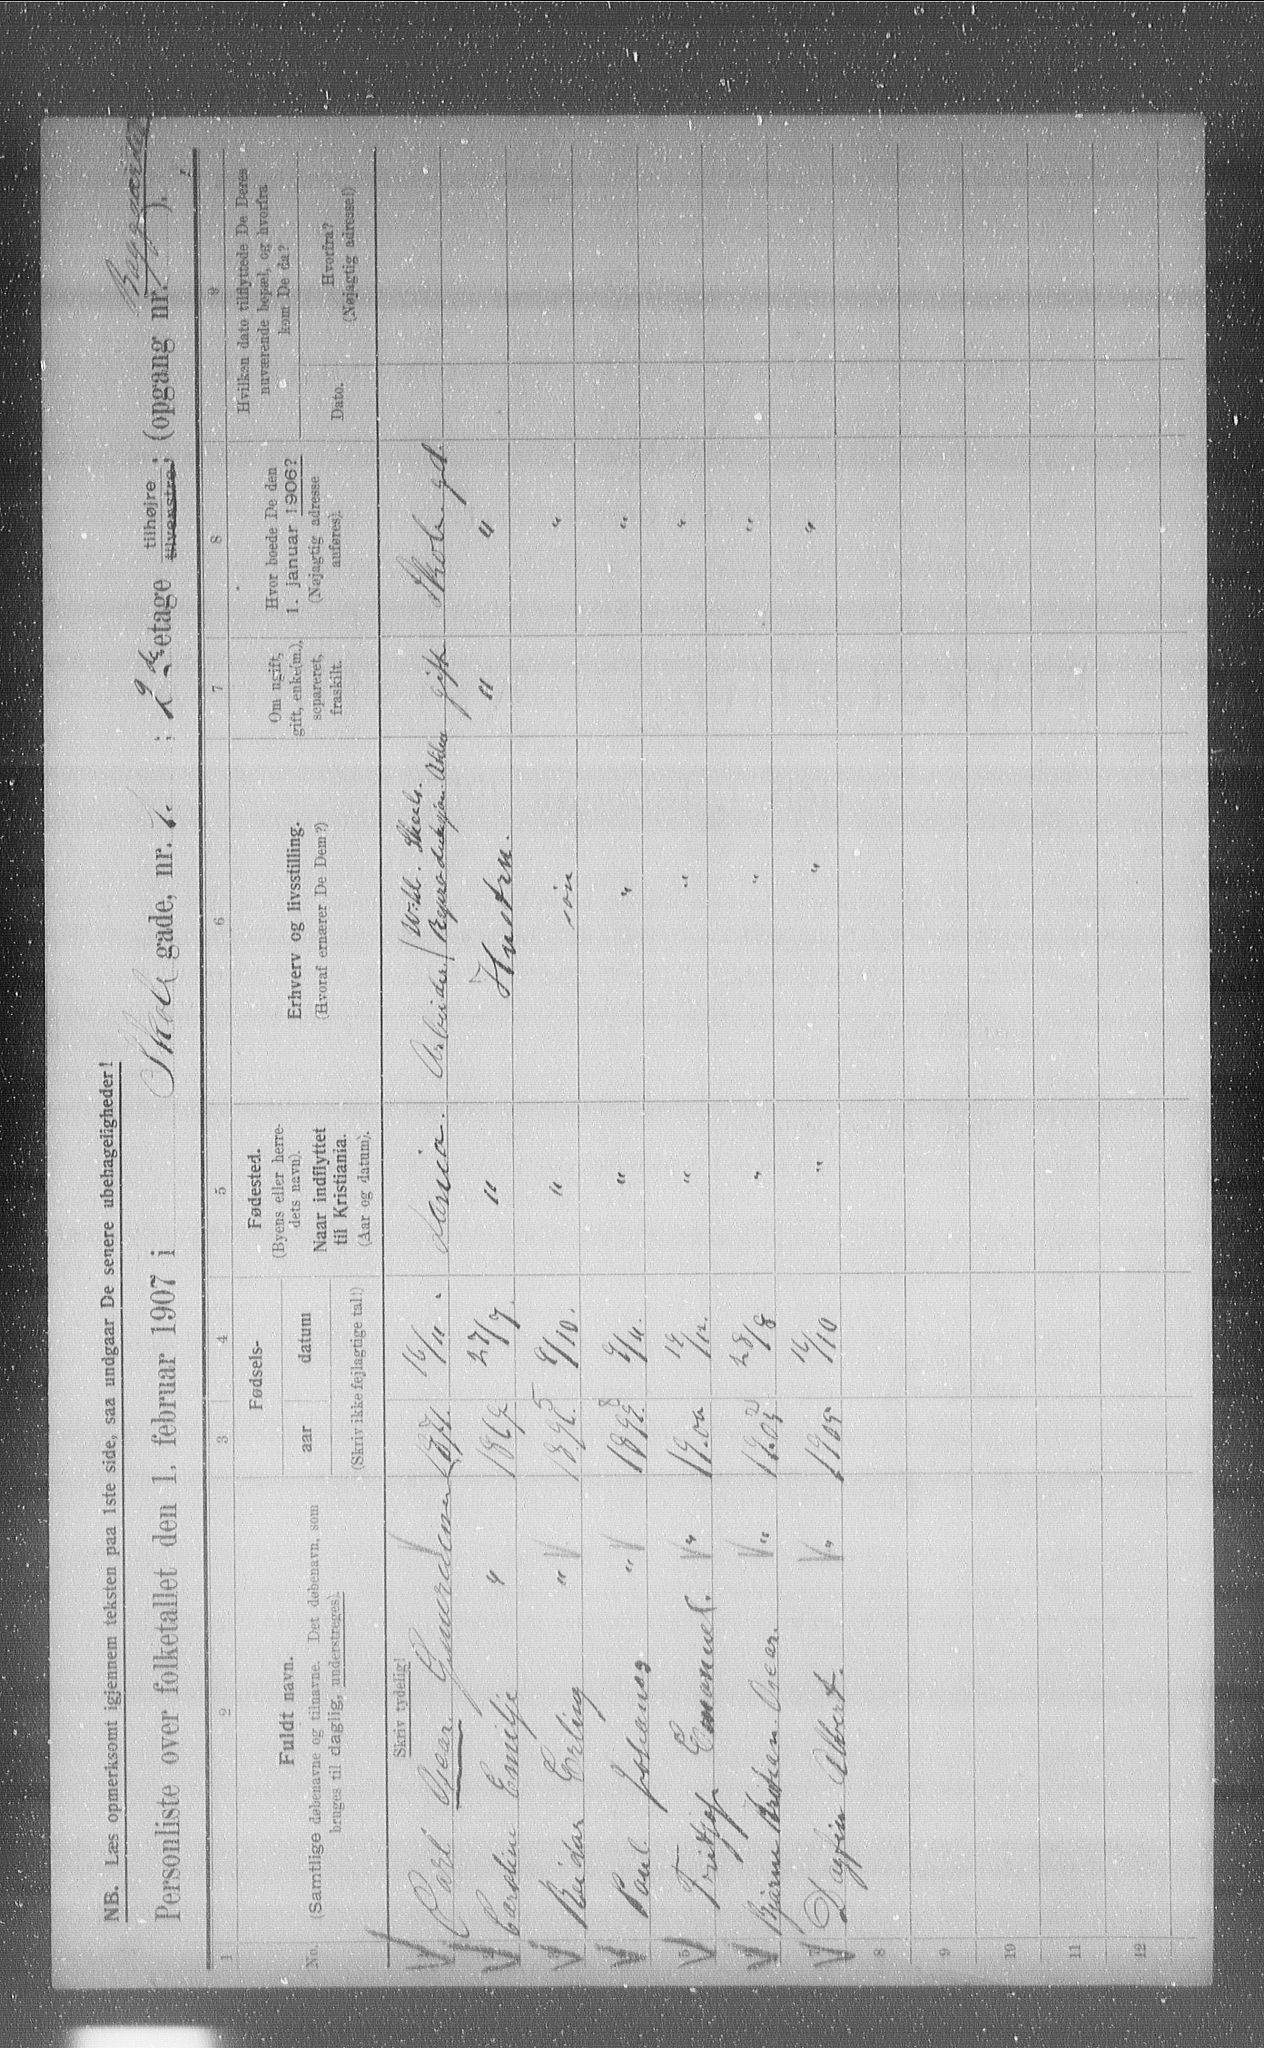 NB. Læs opmerksomt igjennem teksten paa 1ste side, saa undgaar De senere ubehageligheder!
Baggaarden
Personliste over folketallet den 1. februar 1907 i Skole gade, nr. 7. ; 2den etage tilhøjre tilvenstre ; (opgang nr. ).
1 2 3 4 5 6 7 8 9
No.
Fuldt navn.
(Samtlige døbenavne og tilnavne. Det døbenavn, som
bruges til daglig, understreges).
Fødsels-
aar datum
(Skriv ikke fejlagtige tal!)
Fødested.
(Byens eller herre-
dets navn).
Naar indflyttet
til Kristiania.
(Aar og datum).
Erhverv og livsstilling.
(Hvoraf ernærer De Dem?)
Om ugift,
gift, enke(m.),
separeret,
fraskilt.
Hvor boede De den
1. januar 1906?
(Nøjagtig adresse
anføres).
Hvilken dato tilflyttede De Deres
nuværende bopæl, og hvorfra
kom De da?
Dato.
Hvorfra?
(Nøjagtig adresse!)
Skriv tydelig!
1 Carl Oscar 16/11. Arbeider gift Skole gd.
2 Caroline Emilje " 27/7. " Hustru. " "
3 Reidar Erling " 1895 9/10. " søn "
4 Paul Johanes " 1898 9/11. " " "
5 Fridtjof Emanuel. " 19.00 19/12. " " "
6 Bjarne Oscar. " 28/8 " " "
7 Dagfin Albert. " 1905 16/10 " " "
8
9
10
11
12